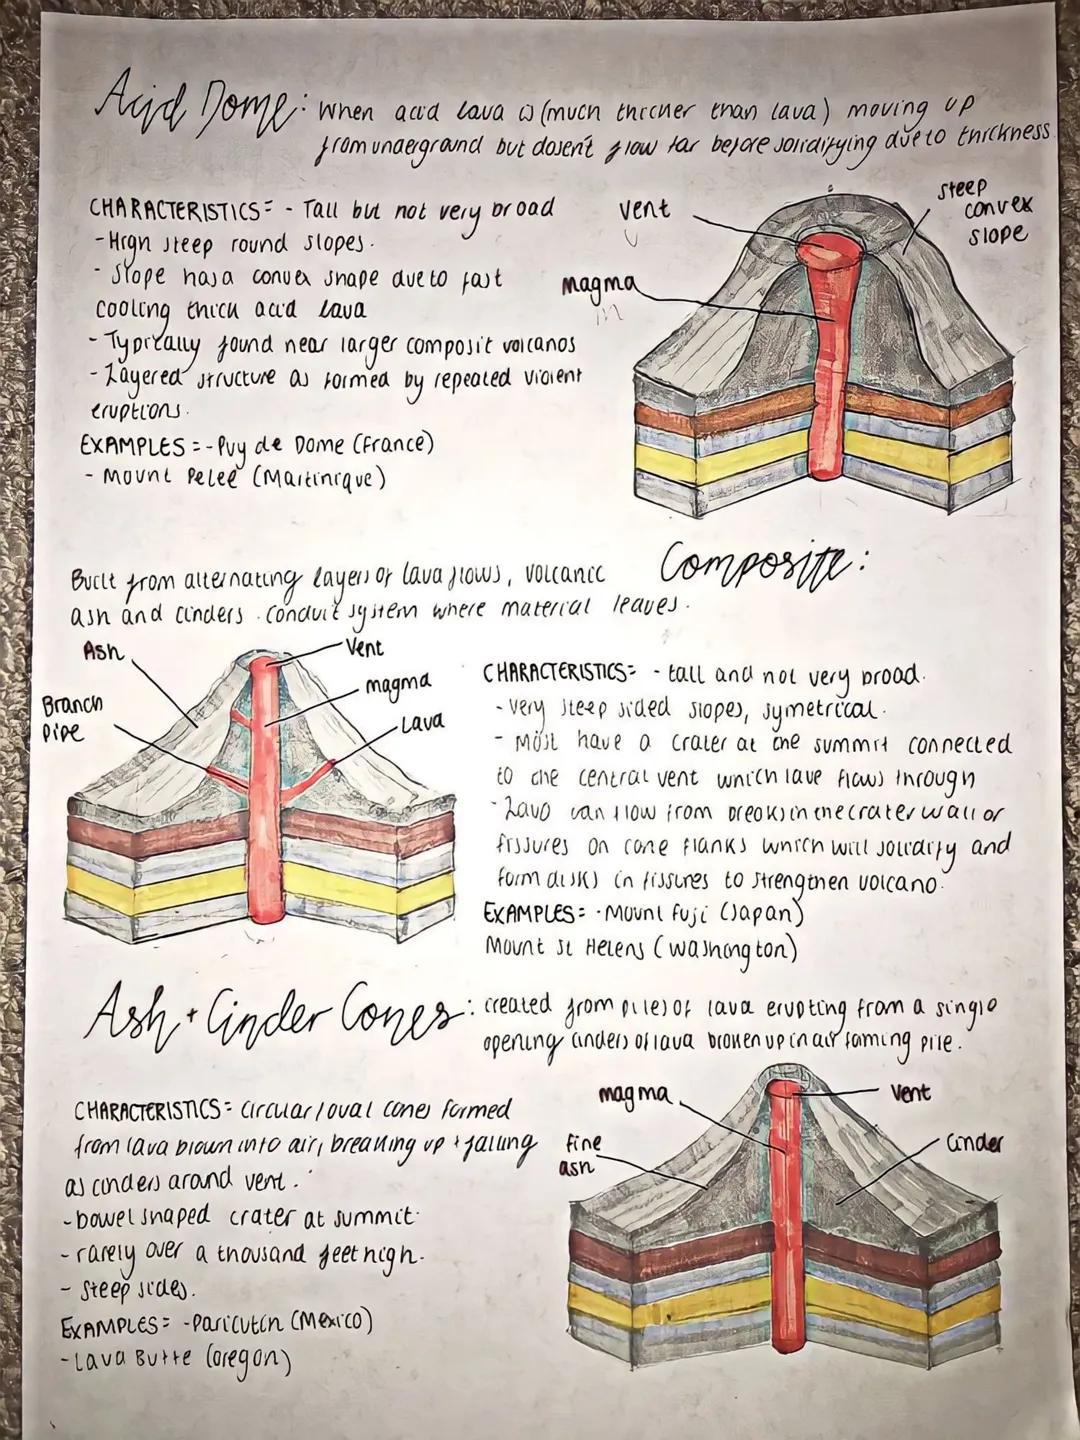 Acid Dome: When acid lava is (much thicker than lava) moving up
from underground but dosent flow far before solidifying due to thickness
CHARACTERISTICS= - Tall but not very broad
- High steep round slopes.
- Slope has a convex shape due to fast
cooling thick acid lava
- Typically found near larger composit volcanos
- Layered structure as formed by repeated violent
eruptions.
EXAMPLES = - Puy de Dome (France)
- Mount Peleé (Martinique)
vent
magma
steep
convex
slope
Composite:
Built from alternating layers of lava flows, volcanic
ash and cinders. Conduit system where material leaves.
Ash
Branch
pipe
Vent
magma
Lava
CHARACTERISTICS= - tall and not very broad.
- Very steep sided slopes, symetrical.
- Most have a crater at the summit connected
to the central vent which lave flows through
- Lava can flow from breaks in the crater wall or
fissures on cone flanks which will solidify and
form disks in fissures to strengthen volcano.
EXAMPLES= - Mount Fuji (Japan)
Mount St Helens (Washington)
Ash + Cinder Cones: created from piles of lava erupting from a single
opening cinders of lava broken up in air forming pile.
CHARACTERISTICS= Circular/oval cones formed
from lava blown into air, breaking up + falling
as cinders around vent.
- bowel shaped crater at summit
- rarely over a thousand feet high.
- Steep sides.
EXAMPLES= - Paricutin (Mexico)
- Lava Butte (oregon)
magma
fine
ash
Vent
Cinder